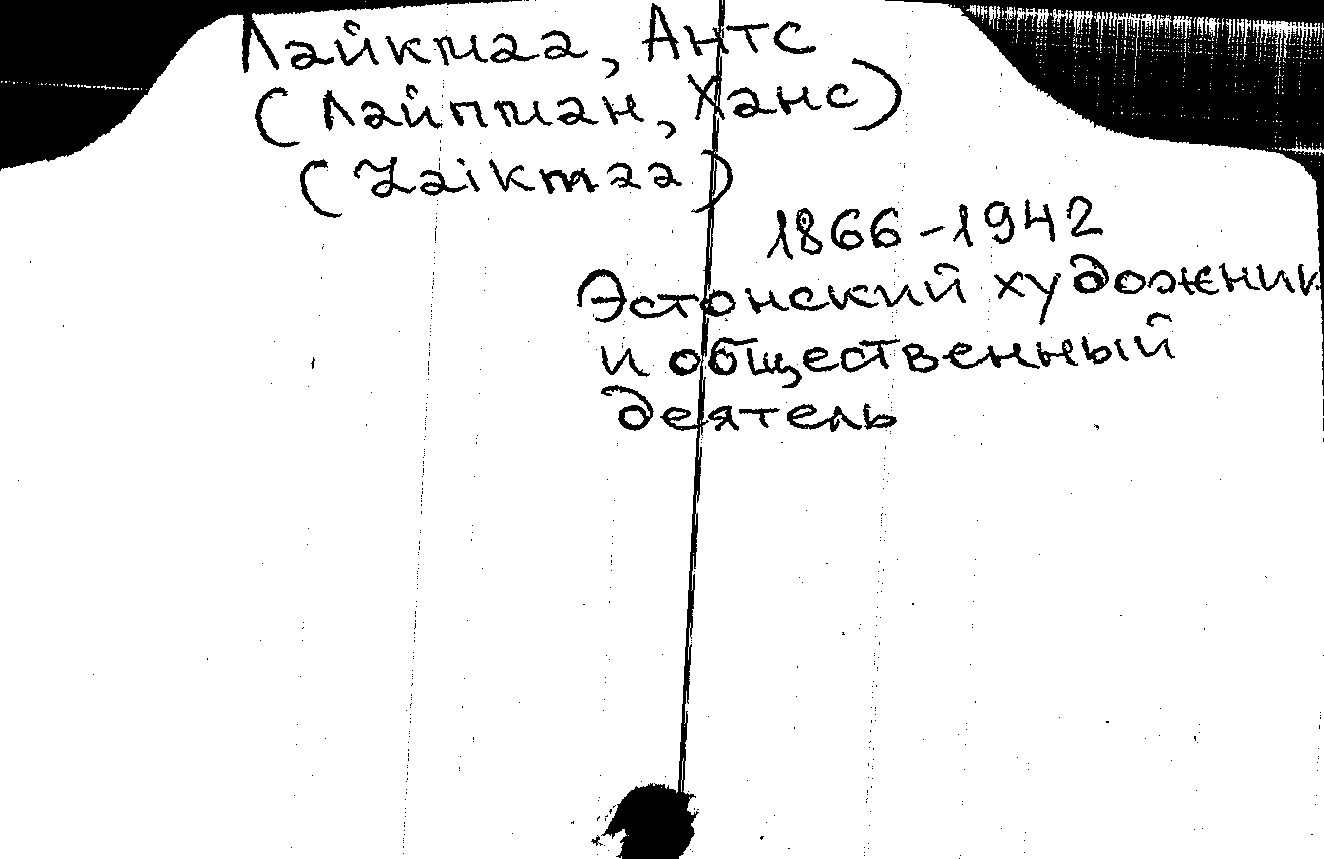 Лайкмаа, Антс
(Лайпман, Ханс)
(Laikmaa)
1866-1942
Эстонский художник
и общественный
деятель